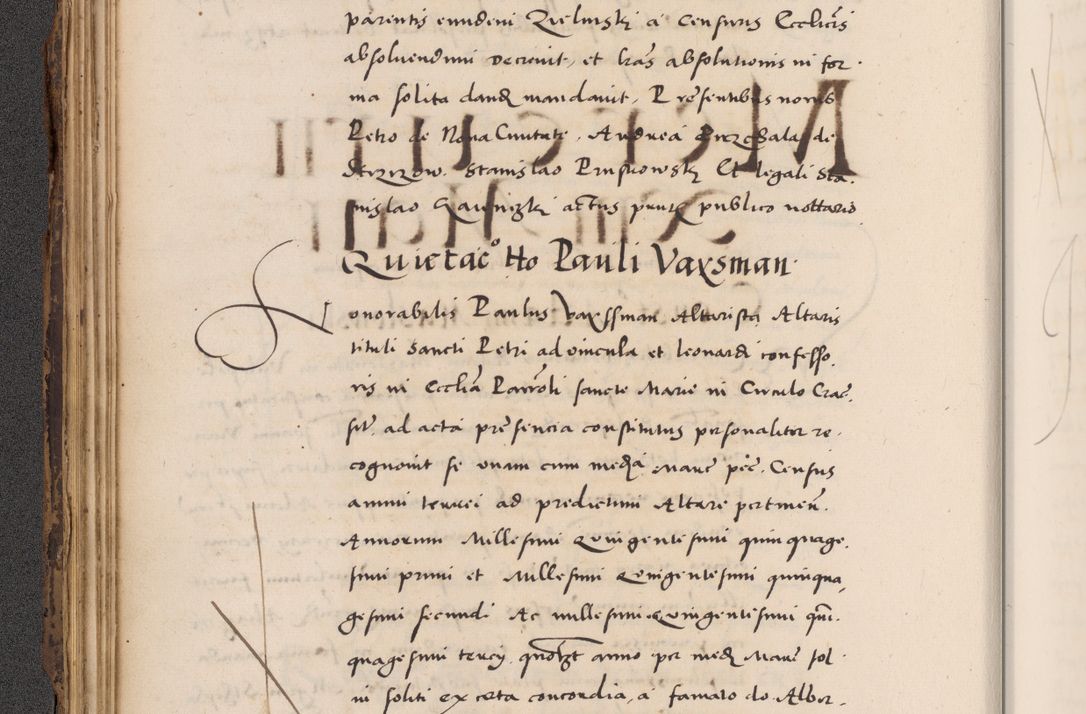 parentis eiusdem Zielinski a Censuris Ecclicis
absoluendum decreuit, et lras absolutionis in for
ma solita dand mandauit, Presentibus nomis
Petro de Noua Ciuitate, Andrea de
Stanislao Pruskowski Et legali Sta
nislao actus puntz publico nottario
Quietac̃o Ho Pauli Vaxsman
onorabilis Paulus Vaxssman Altarista Altaris
tituli Sancti Petri ad vincula et leonardi confesso
ris in Eccliã Parroli sancte Marie in Circulo Crac.
sit. ad acta presencia constitutus personaliter re
cognouit se vnam cum media Marc pec. Census
annui terrei ad predictum Altare pertinen.
Annorum Millesimi Quingentesimi quinquage
simi primi et Millesimi Quingentesimi quinqua
gesimi secundi Ac millesimi Quingentesimi qui
quagesimi tercy, quolt anno per med Marc sol
ni soliti ex certa concordia, a famato do Alber